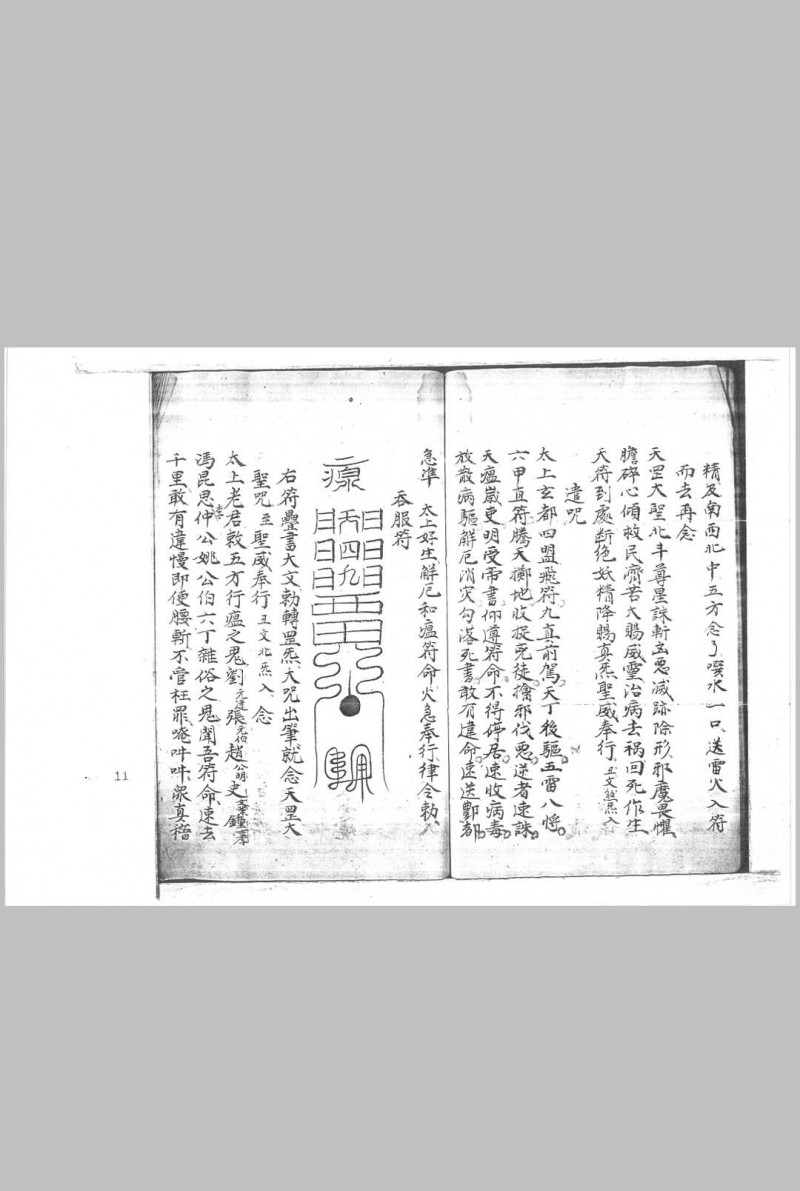 精及南西北中五方念了噀水一口送雷火入符
而去再念
天罡大聖北斗尊星誅斬凶惡滅跡除形邪魔畏懼
膽碎心傾救民濟苦大賜威靈治病去禍回死作生
天符到處断絕妖精降賜真炁聖威奉行 丑文煞炁入
遣咒
太上玄都四盟飛符九真前駕天丁後驅五雷八將
六甲直符騰天擲地收捉兇徒擒邪伐惡逆者速誅
天瘟歲吏明受帝書仰遵符命不得停居速收病毒
放散病驅解厄消灾勾落死書敢有違命速送酆都
急準 太上好生解厄和瘟符命火急奉行律令勅
吞服符
右符疊書大文勅轉罡炁大咒出筆就念天罡大
聖咒至聖威奉行 丑文北炁入 念
太上老君敕五方行瘟之鬼劉元達張元伯趙公明史文業鍾士季
馮昆思仲公姚公伯六丁雜俗之鬼聞吾符命速去
千里敢有違慢即便腰斬不管枉罪唵吽吽
11